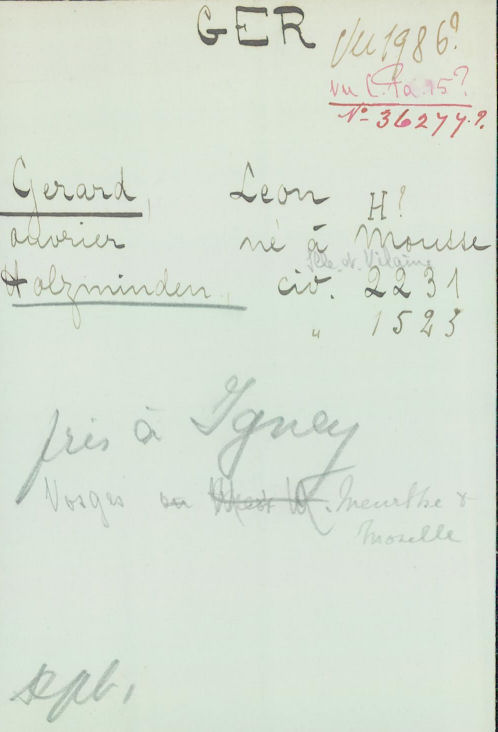 GER
Vu 1986?
vu C. fa 15?
Nº 36277.?
Gerard, Leon H?
ouvrier né à Mousse
Ille et Vilaine
Holzminden, civ. 2231
" 1523
pris à Igney
Vosges ou Meurthe &
Moselle
répb.